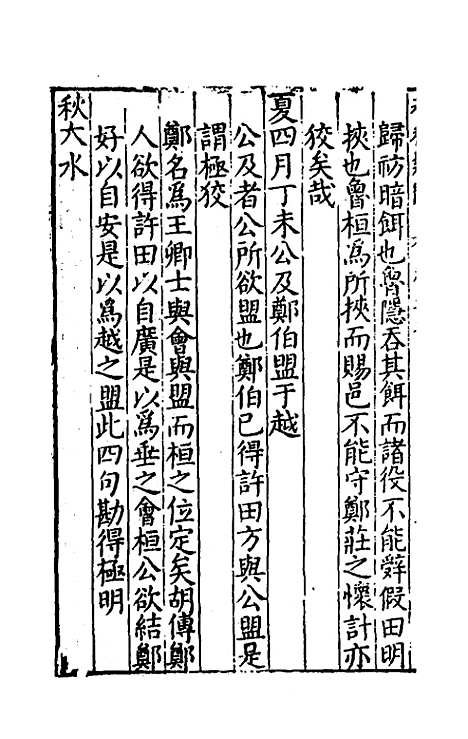 歸祊暗餌也魯隱吞其餌而諸役不能辭假田明
挾也魯桓爲所挾而賜邑不能守鄭莊之懷計亦
狡矣哉
夏四月丁未公及鄭伯盟于越
公及者公所欲盟也鄭伯已得許田方與公盟是
謂極狡
鄭名爲王卿士與會與盟而桓之位定矣胡傳鄭
人欲得許田以自廣是以爲垂之會桓公欲結鄭
好以自安是以爲越之盟此四句勘得極明
秋大水